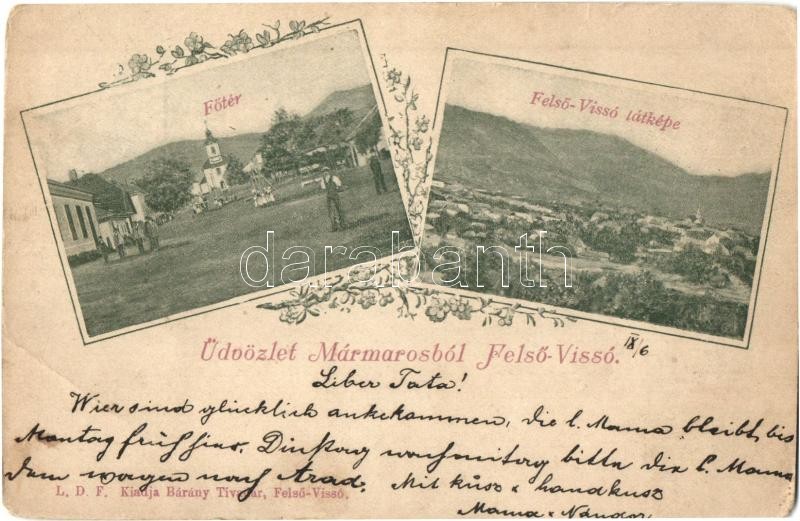 Főtér
Felső-Vissó látképe
darabanth
Üdvözlet Mármarosból Felső-Vissó.
IX/6
Liber Tata!
Wier sind glücklich ankekammen, die l. Mama bleibt bis
Montag früh hier. Dinstag nachmitag bitte die l. Mama
dem wagen nach Arad. Mit küsz & handkusz
L. D. F. Kiadja Bárány Tivadar, Felső-Vissó.
Mama & Nandor